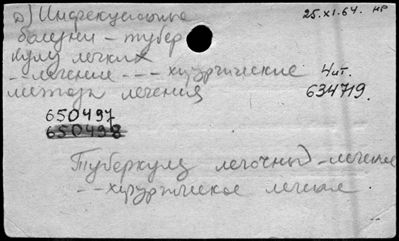 д) Инфекционные
25.XI.64. НР
болезни – тубер
кулз легких
– лечение - - - хирургические
методы лечения
Чит.
634719.
650497
650498
Туберкулез легочный – лечение
- - хирургическое лечение